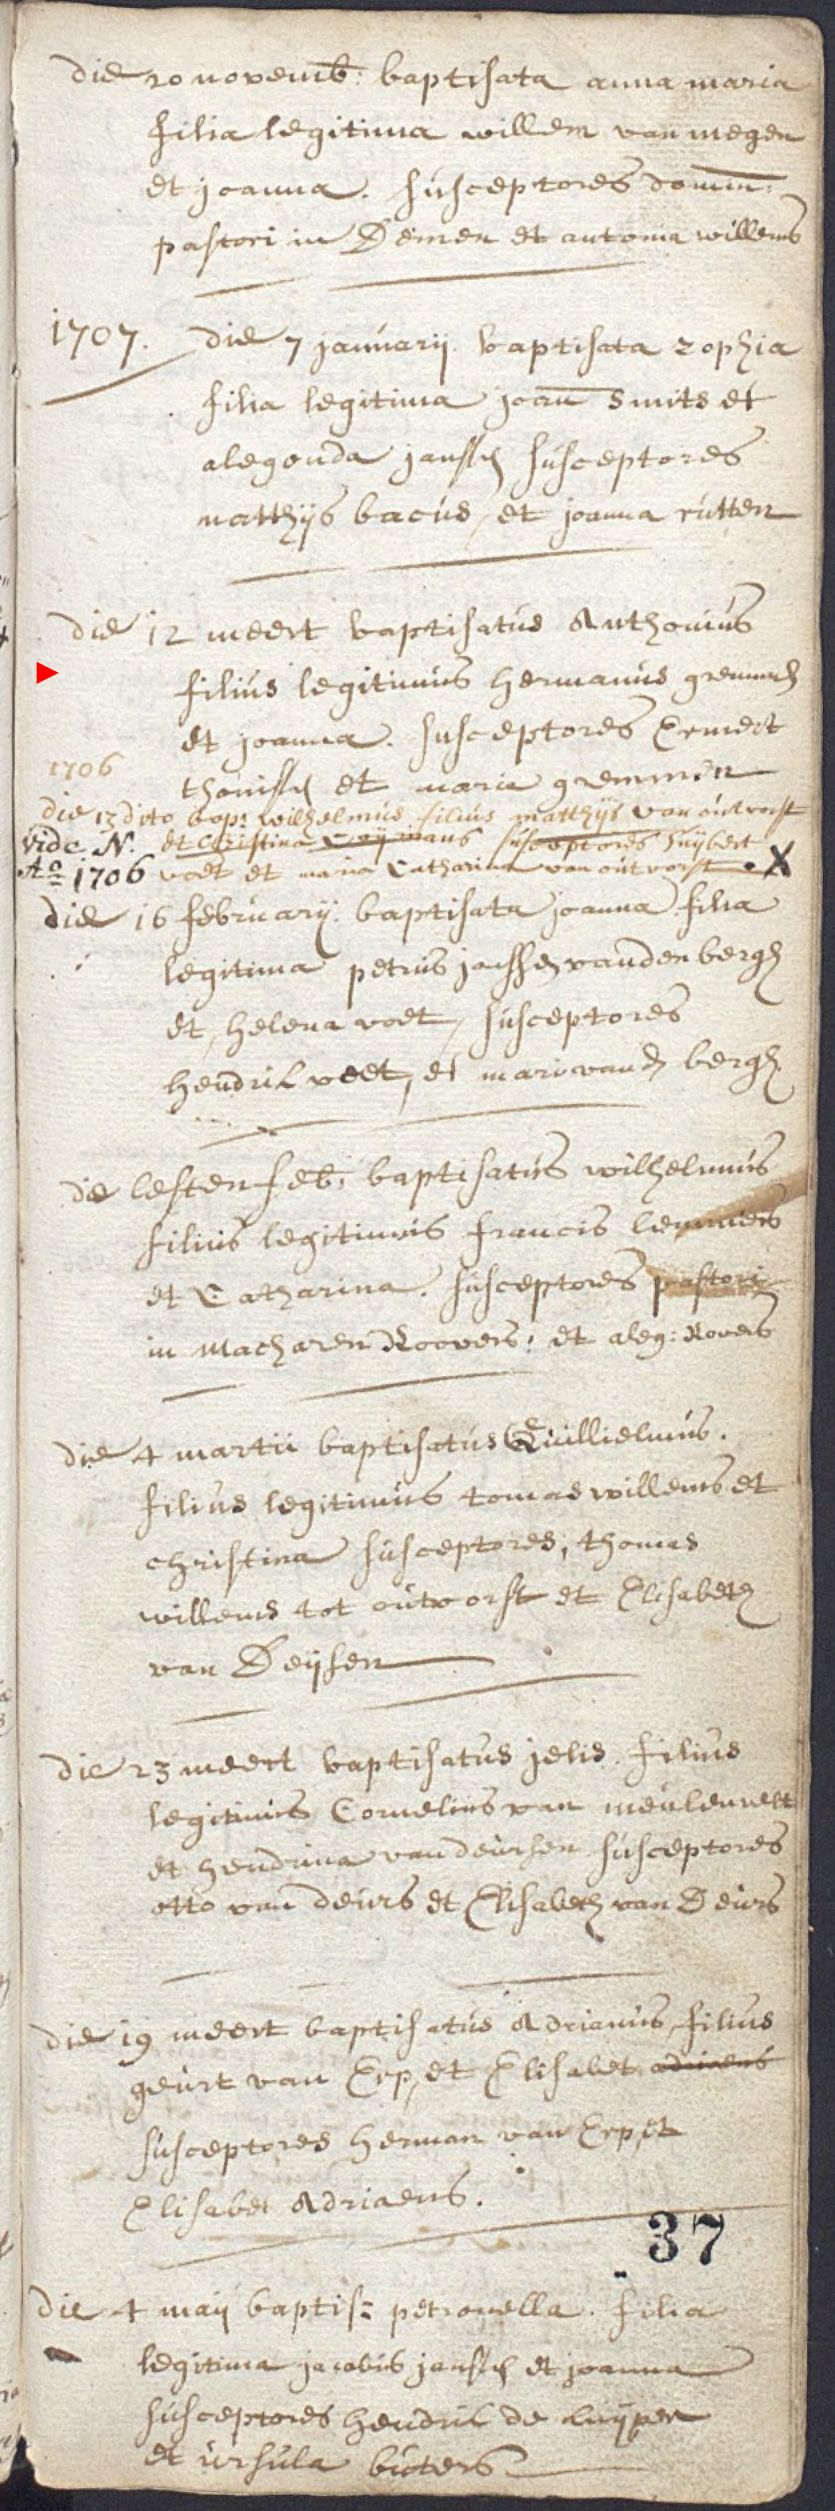 die 20 novemb: baptisata anna maria
filia legitima willem van megen
et joanna. susceptores domin:
pastori in Demen et antonia willems
1707. die 7 januarij baptisata zophia
filia legitima joan smits et
alegonda janssen susceptores
matthijs bacus, et joanna rutten
die 12 meert baptisatus Anthonius
filius legitimus hermanus gremmen
et joanna. susceptores Ermert
thonissen et maria gremmen
1706
die 13 dito bap: wilhelmus filius matthijs van outvorst
vide N. et Christina susceptores huijbert
Ao 1706 voet et maria Catharina van outvorst . X
die 16 februarij. baptisata joanna filia
legitima petrus janssen vanden bergh
et, helena voet, susceptores
hendrik voet, et mari vanden bergh.
die lesten feb: baptisatus wilhelmus
filius legitimus francis lemmers
et Catharina. susceptores pastori
in macharen Roovers: et aleg: Rovers
die 4 martii baptisatus Guillielmus.
filius legitimus tomas willems et
christina susceptores, thomas
willems tot outvorst et Elisabeth
van Deijsen
die 23 meert baptisatus jelis. filius
legitimus Cornelius van meulenvelt
et hendrina van deursen susceptores
otto van deurs et Elisabeth van Deurs
die 19 meert baptisatus Adrianus, filius
geurt van Erp, et Elisabet adriaens
susceptores herman van Erp, et
Elisabet Adriaens.
37
die 4 maij baptis: petronella. filia
legitima jacobus janssen et joanna
susceptores hendrik de kuijper
et ursula buters